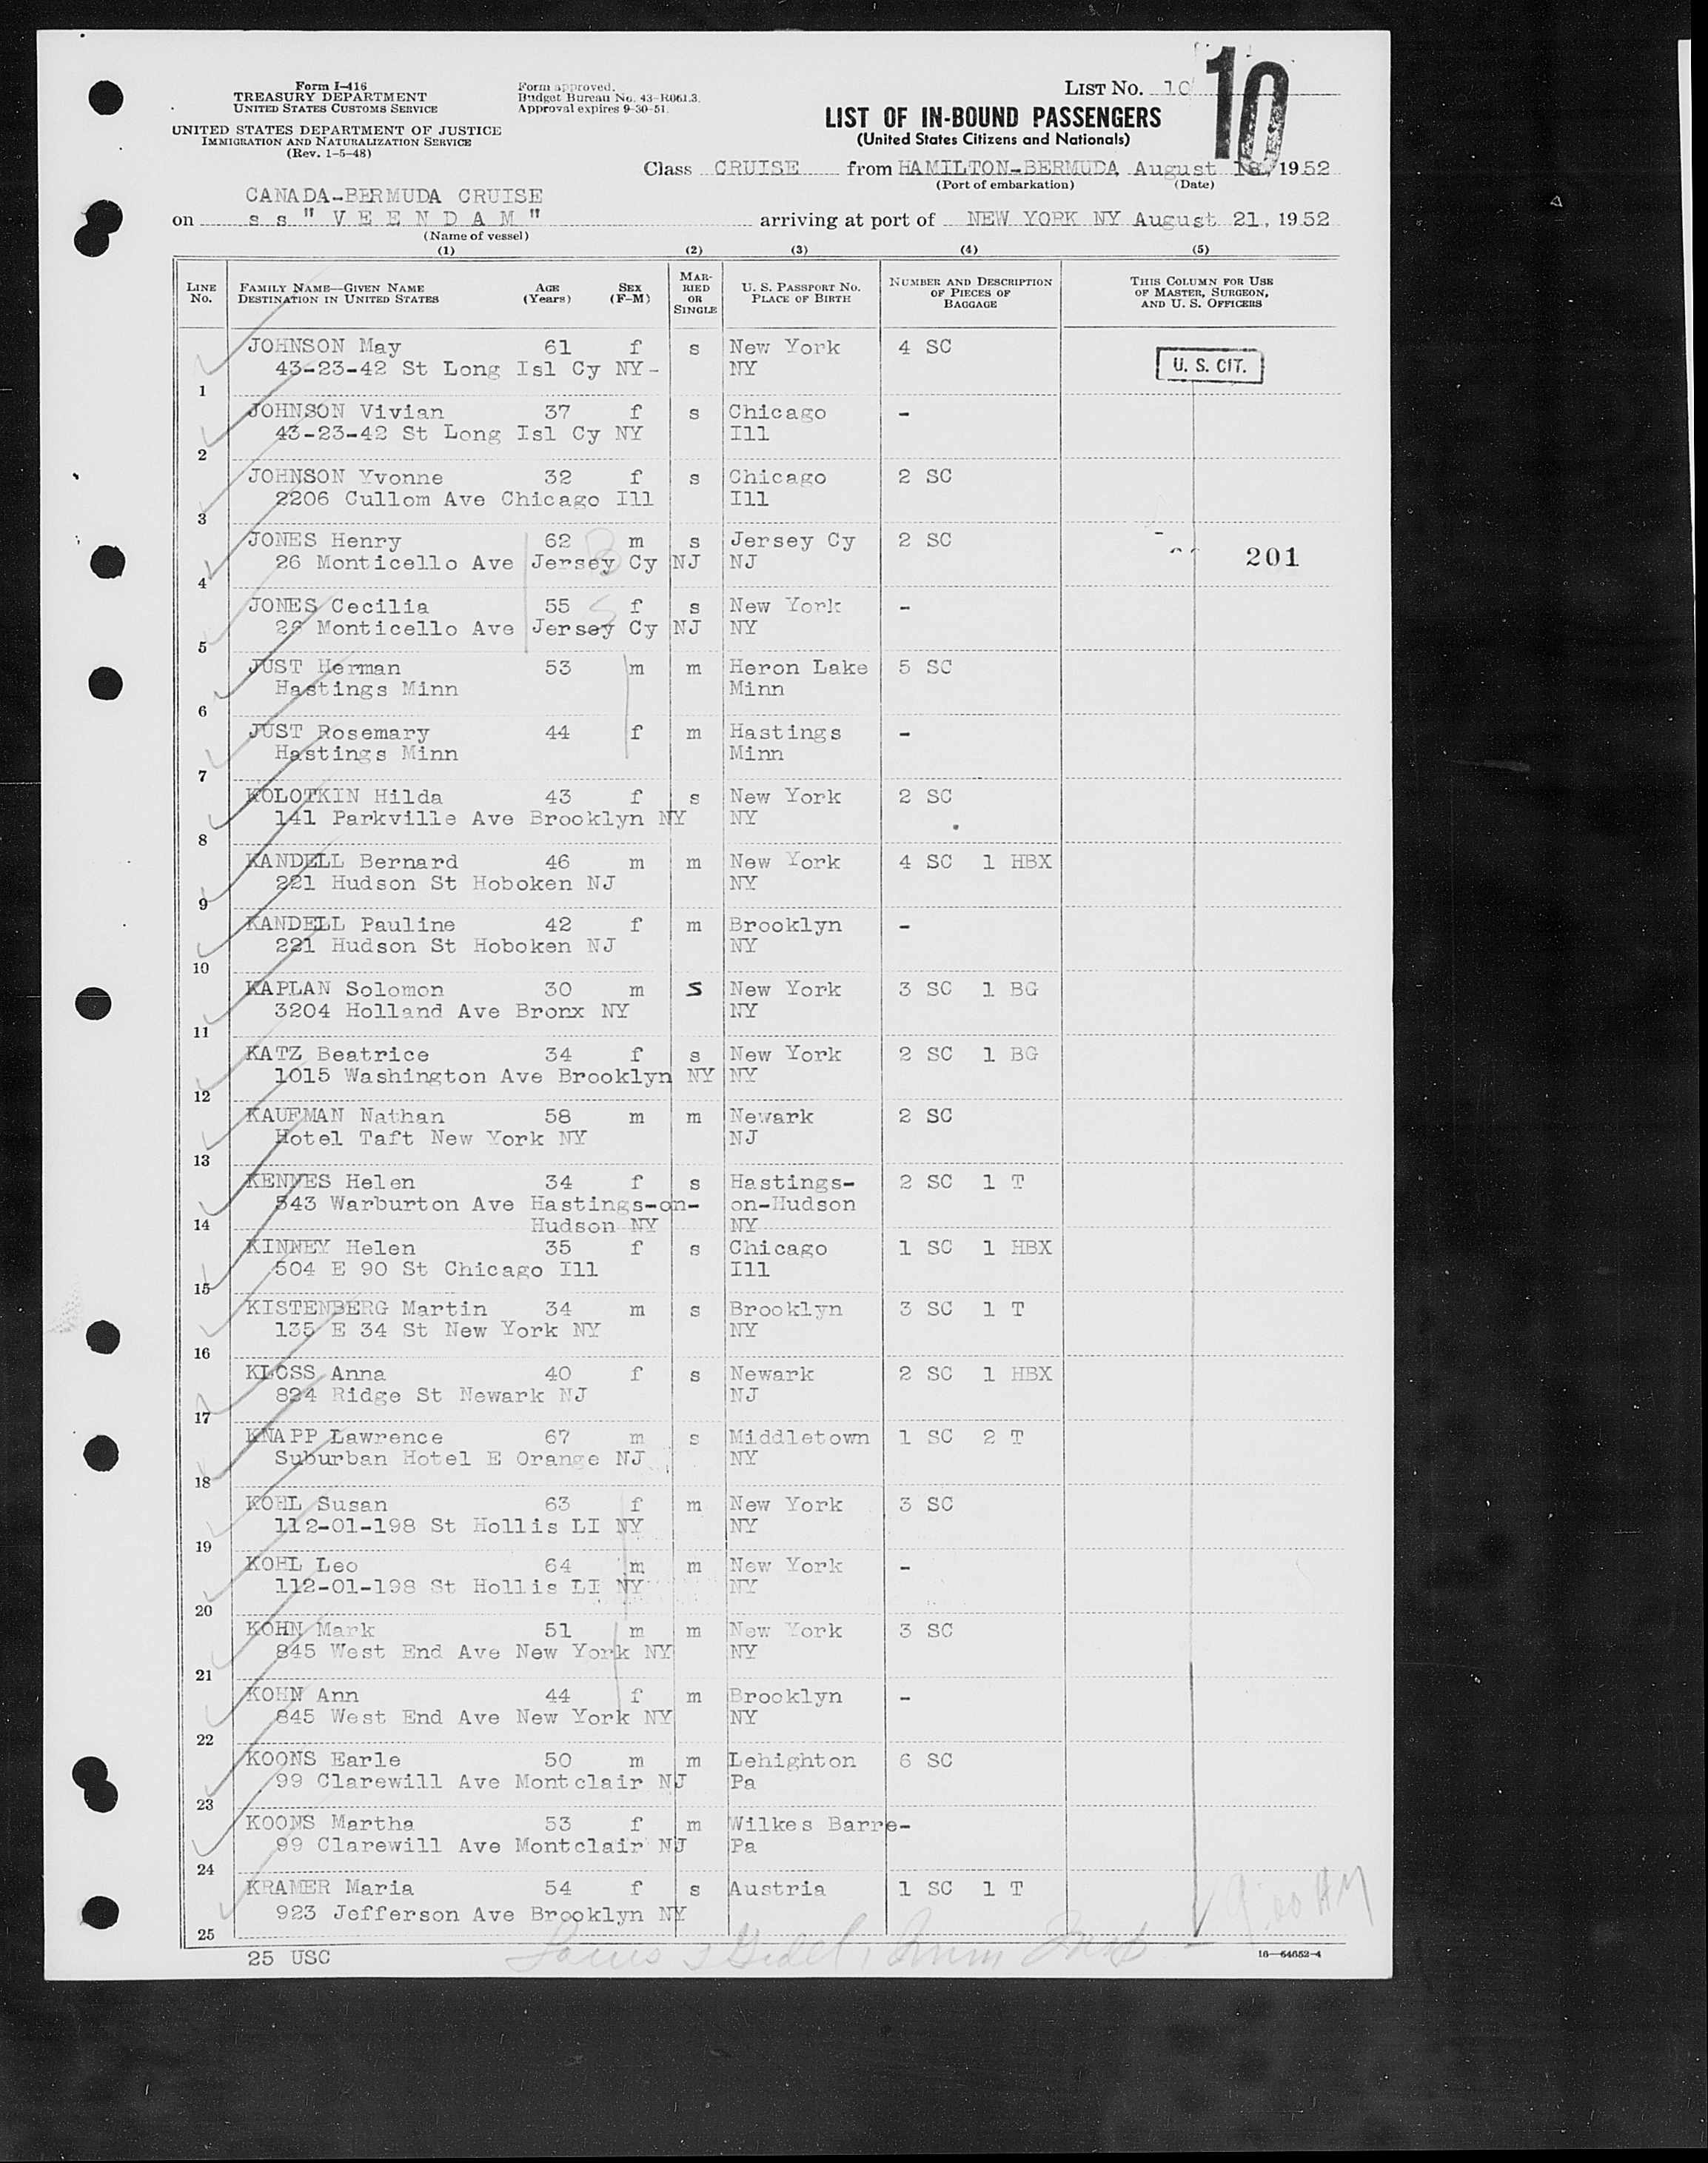 Form I-416
TREASURY DEPARTMENT
UNITED STATES CUSTOMS SERVICE
UNITED STATES DEPARTMENT OF JUSTICE
IMMIGRATION AND NATURALIZATION SERVICE
(Rev. 1-5-48)
Form approved.
Budget Bureau No. 43-R061.3.
Approval expires 9-30-51.
LIST NO. 10
10
LIST OF IN-BOUND PASSENGERS
(United States Citizens and Nationals)
Class CRUISE from HAMILTON-BERMUDA, August 18, 1952
(Port of embarkation) (Date)
CANADA-BERMUDA CRUISE
on s s " V E E N D A M " arriving at port of NEW YORK NY August 21, 1952
(Name of vessel)
(1) (2) (3) (4) (5)
LINE No. FAMILY NAME—GIVEN NAME DESTINATION IN UNITED STATES AGE (Years) SEX (F-M) MARRIED OR SINGLE U. S. PASSPORT NO. PLACE OF BIRTH NUMBER AND DESCRIPTION OF PIECES OF BAGGAGE THIS COLUMN FOR USE OF MASTER, SURGEON, AND U. S. OFFICERS
JOHNSON May 61 f s New York 4 SC
43-23-42 St Long Isl Cy NY- NY U. S. CIT.
1
JOHNSON Vivian 37 f s Chicago -
43-23-42 St Long Isl Cy NY Ill
2
JOHNSON Yvonne 32 f s Chicago 2 SC
2206 Cullom Ave Chicago Ill Ill
3
JONES Henry 62 m s Jersey Cy 2 SC
26 Monticello Ave Jersey Cy NJ NJ 201
4
JONES Cecilia 55 f s New York -
26 Monticello Ave Jersey Cy NJ NY
5
JUST Herman 53 m m Heron Lake 5 SC
Hastings Minn Minn
6
JUST Rosemary 44 f m Hastings -
Hastings Minn Minn
7
KOLOTKIN Hilda 43 f s New York 2 SC
141 Parkville Ave Brooklyn NY NY
8
KANDELL Bernard 46 m m New York 4 SC 1 HBX
221 Hudson St Hoboken NJ NY
9
KANDELL Pauline 42 f m Brooklyn -
221 Hudson St Hoboken NJ NY
10
KAPLAN Solomon 30 m S New York 3 SC 1 BG
3204 Holland Ave Bronx NY NY
11
KATZ Beatrice 34 f s New York 2 SC 1 BG
1015 Washington Ave Brooklyn NY NY
12
KAUFMAN Nathan 58 m m Newark 2 SC
Hotel Taft New York NY NJ
13
KENNES Helen 34 f s Hastings- 2 SC 1 T
543 Warburton Ave Hastings-on- on-Hudson
14 Hudson NY NY
KINNEY Helen 35 f s Chicago 1 SC 1 HBX
504 E 90 St Chicago Ill Ill
15
KISTENBERG Martin 34 m s Brooklyn 3 SC 1 T
135 E 34 St New York NY NY
16
KLOSS Anna 40 f s Newark 2 SC 1 HBX
824 Ridge St Newark NJ NJ
17
KNAPP Lawrence 67 m s Middletown 1 SC 2 T
Suburban Hotel E Orange NJ NY
18
KOHL Susan 63 f m New York 3 SC
112-01-198 St Hollis LI NY NY
19
KOHL Leo 64 m m New York -
112-01-198 St Hollis LI NY NY
20
KOHN Mark 51 m m New York 3 SC
845 West End Ave New York NY NY
21
KOHN Ann 44 f m Brooklyn -
845 West End Ave New York NY NY
22
KOONS Earle 50 m m Lehighton 6 SC
99 Clarewill Ave Montclair NJ Pa
23
KOONS Martha 53 f m Wilkes Barre-
99 Clarewill Ave Montclair NJ Pa
24
KRAMER Maria 54 f s Austria 1 SC 1 T
923 Jefferson Ave Brooklyn NY
25
25 USC 16—64652-4